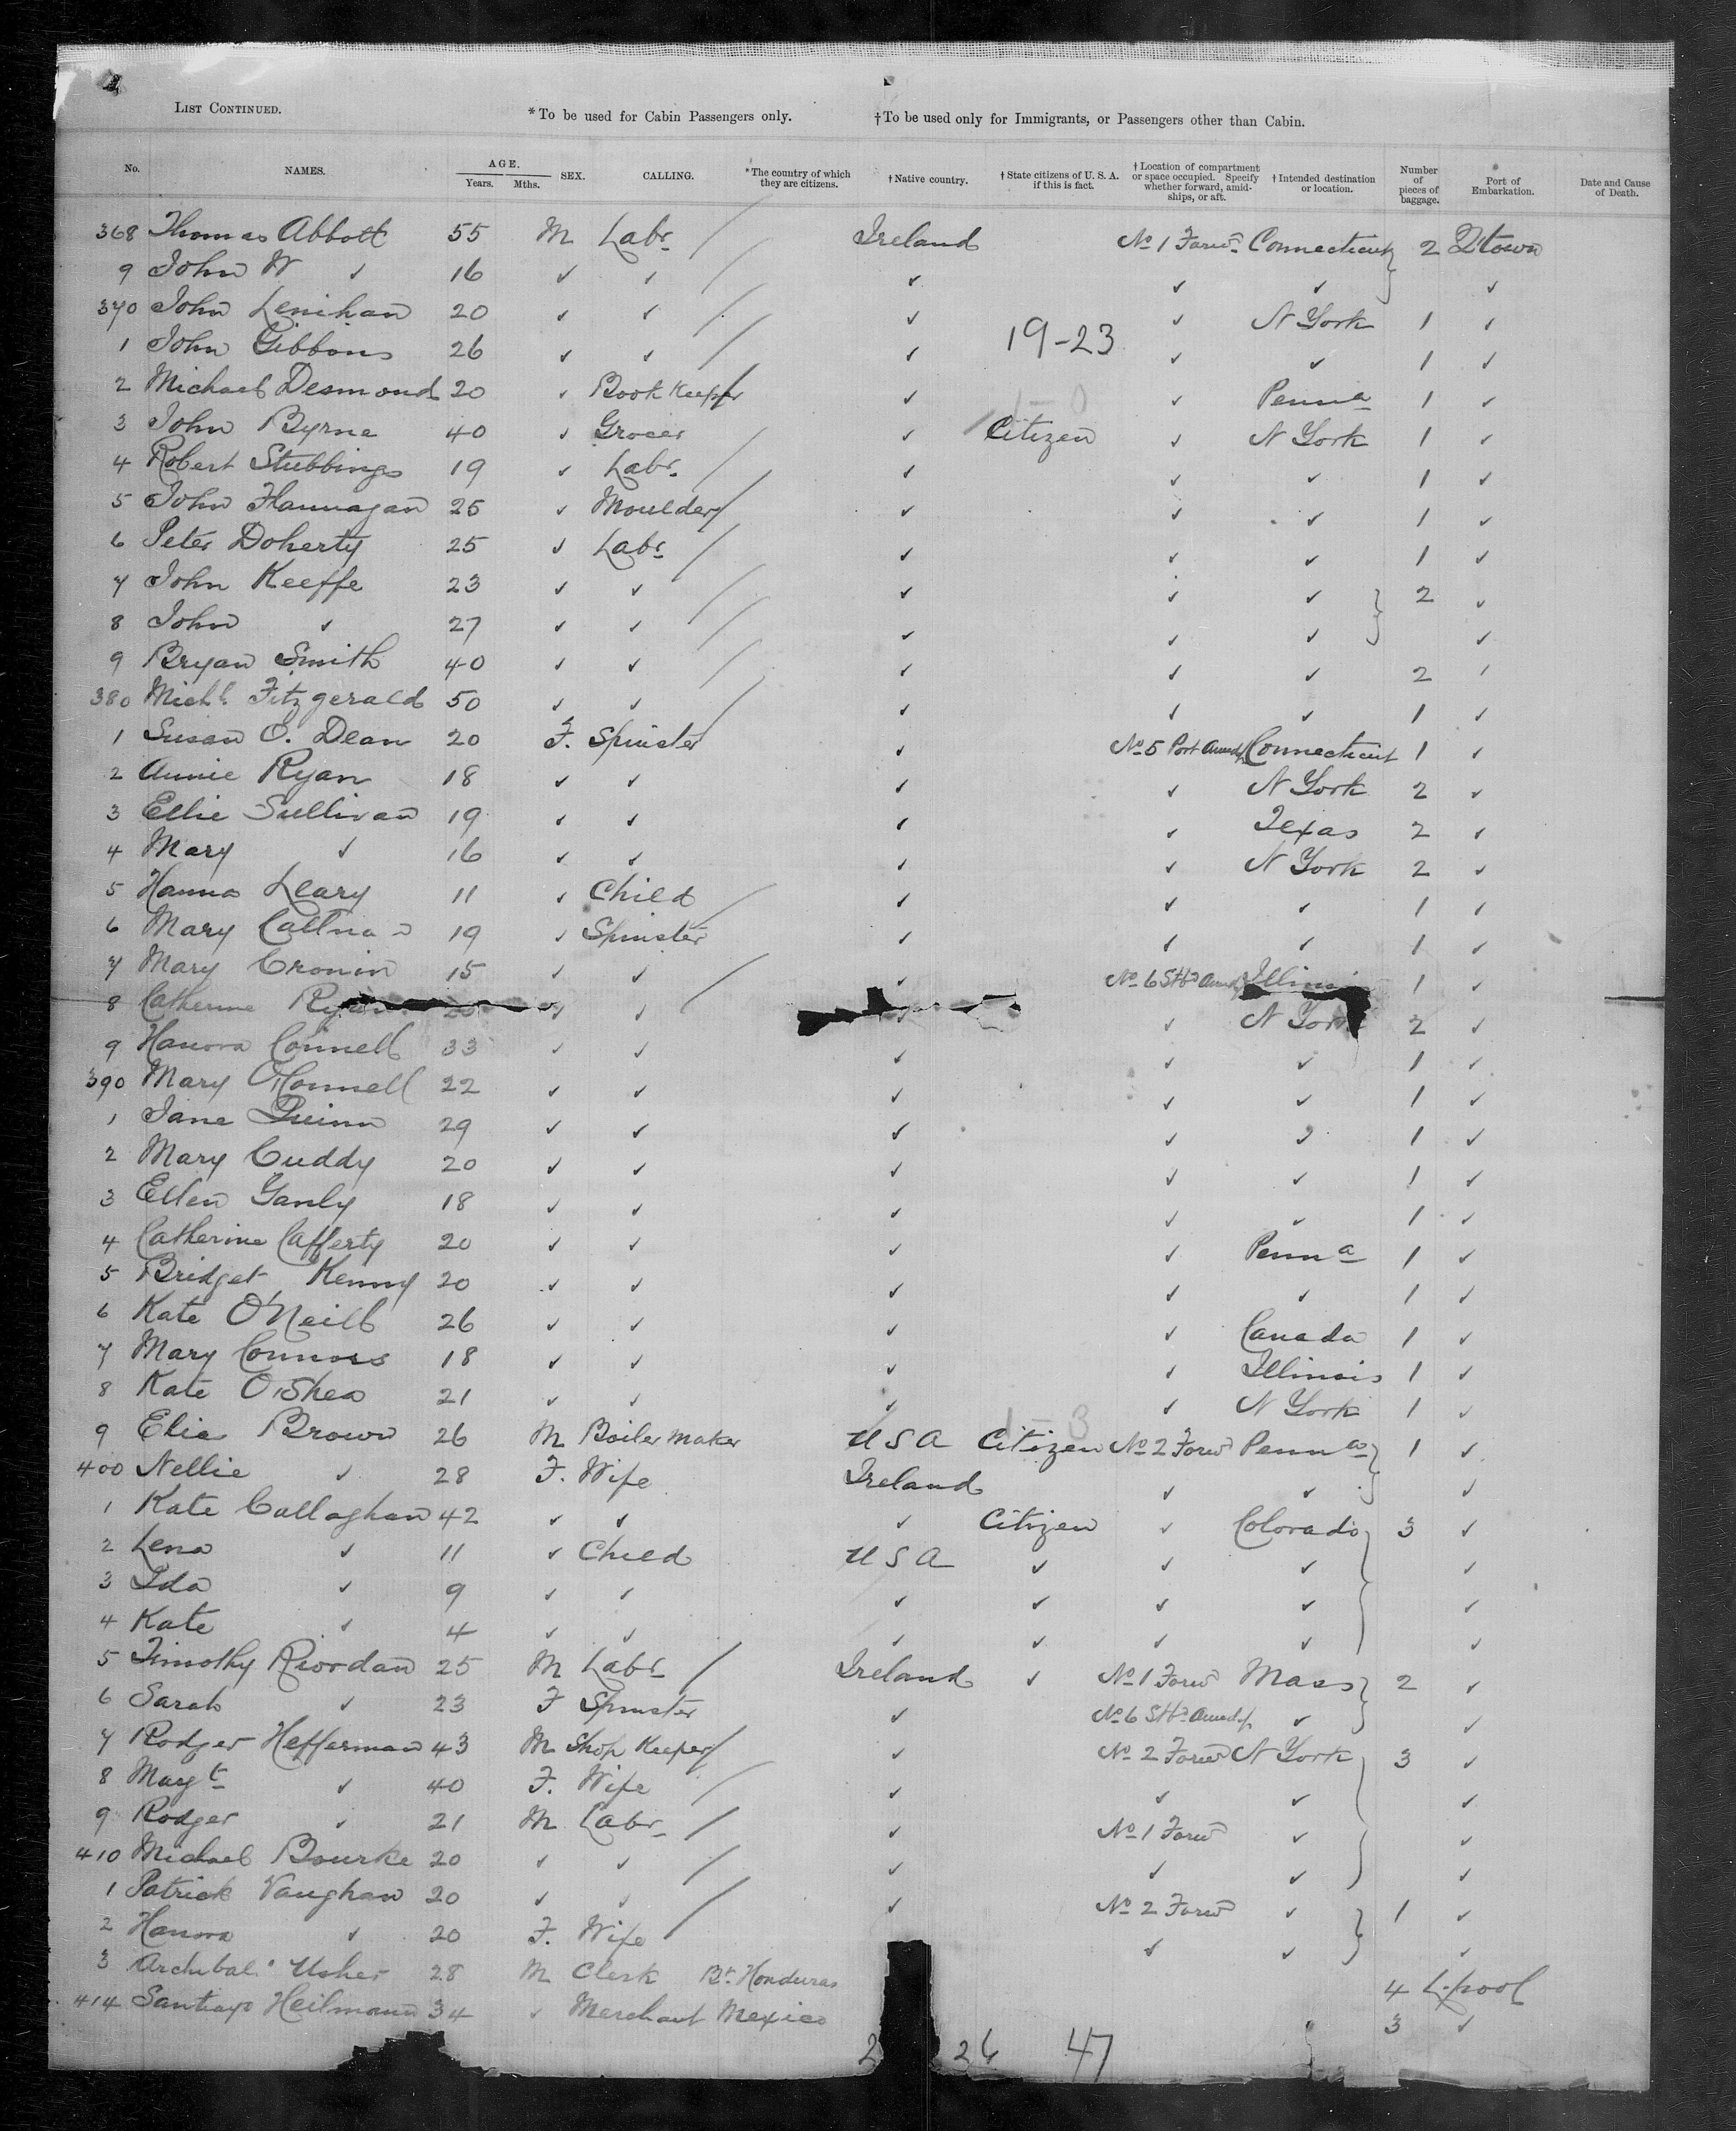 List Continued. *To be used for Cabin Passengers only. †To be used only for Immigrants, or Passengers other than Cabin.
No. NAMES. AGE. Years. Mths. SEX. CALLING. *The country of which they are citizens. †Native country. †State citizens of U. S. A. if this is fact. †Location of compartment or space occupied. Specify whether forward, amidships, or aft. †Intended destination or location. Number of pieces of baggage. Port of Embarkation. Date and Cause of Death.
368 Thomas Abbott 55 M Labr / Ireland No 1 Forwd Connecticut } 2 Qtown
9 John W ✓ 16 ✓ ✓ / ✓ ✓ ✓ ✓
370 John Lenihan 20 ✓ ✓ / ✓ ✓ N York 1 ✓
1 John Gibbons 26 ✓ ✓ / ✓ 19-23 ✓ ✓ 1 ✓
2 Michael Desmond 20 ✓ Book Keeper / ✓ ✓ Penna 1 ✓
3 John Byrne 40 ✓ Grocer / ✓ Citizen ✓ N York 1 ✓
4 Robert Stubbings 19 ✓ Labr / ✓ ✓ ✓ 1 ✓
5 John Flannagan 25 ✓ Moulder / ✓ ✓ ✓ 1 ✓
6 Peter Doherty 25 ✓ Labr / ✓ ✓ ✓ 1 ✓
7 John Keeffe 23 ✓ ✓ / ✓ ✓ ✓ } 2 ✓
8 John ✓ 27 ✓ ✓ / ✓ ✓ ✓ ✓
9 Bryan Smith 40 ✓ ✓ / ✓ ✓ ✓ 2 ✓
380 Michl Fitzgerald 50 ✓ ✓ / ✓ ✓ ✓ 1 ✓
1 Susan O. Dean 20 F. Spinster ✓ No 5 Port Amids Connecticut 1 ✓
2 Annie Ryan 18 ✓ ✓ ✓ ✓ N York 2 ✓
3 Ellie Sullivan 19 ✓ ✓ ✓ ✓ Texas 2 ✓
4 Mary ✓ 16 ✓ ✓ ✓ ✓ N York 2 ✓
5 Hanna Leary 11 ✓ Child / ✓ ✓ ✓ 1 ✓
6 Mary 19 ✓ Spinster ✓ ✓ ✓ 1 ✓
7 Mary Cronin 15 ✓ ✓ / ✓ No 6 Stbd Amids 1 ✓
8 Catherine Ryan ✓ ✓ ✓ N York 2 ✓
9 Hanora Connell 33 ✓ ✓ ✓ ✓ ✓ 1 ✓
390 Mary O'Connell 22 ✓ ✓ ✓ ✓ ✓ 1 ✓
1 Jane Quinn 29 ✓ ✓ ✓ ✓ ✓ 1 ✓
2 Mary Cuddy 20 ✓ ✓ ✓ ✓ ✓ 1 ✓
3 Ellen Ganly 18 ✓ ✓ ✓ ✓ ✓ 1 ✓
4 Catherine Cafferty 20 ✓ ✓ ✓ ✓ Penna 1 ✓
5 Bridget Kenny 20 ✓ ✓ ✓ ✓ ✓ 1 ✓
6 Kate O'Neill 26 ✓ ✓ ✓ ✓ Canada 1 ✓
7 Mary Connors 18 ✓ ✓ ✓ ✓ Illinois 1 ✓
8 Kate O'Shea 21 ✓ ✓ ✓ ✓ N York 1 ✓
9 Elia Brown 26 M Boiler Maker U S A Citizen No 2 Forwd Penna } 1 ✓
400 Nellie ✓ 28 F. Wife Ireland ✓ ✓ ✓
1 Kate Callaghan 42 ✓ ✓ ✓ Citizen ✓ Colorado } 3 ✓
2 Lena ✓ 11 ✓ Child U S A ✓ ✓ ✓ ✓
3 Ida ✓ 9 ✓ ✓ ✓ ✓ ✓ ✓ ✓
4 Kate ✓ 4 ✓ ✓ ✓ ✓ ✓ ✓ ✓
5 Timothy Riordan 25 M Labr / Ireland ✓ No 1 Forwd Mass } 2 ✓
6 Sarah ✓ 23 F Spinster ✓ No 6 Stbd Amids ✓ ✓
7 Rodger Heffernan 43 M Shop Keeper / ✓ No 2 Forwd N York } 3 ✓
8 Margt ✓ 40 F. Wife / ✓ ✓ ✓ ✓
9 Rodger ✓ 21 M Labr / ✓ No 1 Forwd ✓ ✓
410 Michael Bourke 20 ✓ ✓ / ✓ ✓ ✓ ✓
1 Patrick Vaughan 20 ✓ ✓ / ✓ No 2 Forwd ✓ } 1 ✓
2 Hanora ✓ 20 F. Wife ✓ ✓ ✓
3 Archibal Usher 28 M Clerk Br. Honduras 4 L.pool
414 Santiago Heilmann 34 ✓ Merchant Mexico 3 ✓
2 26 47